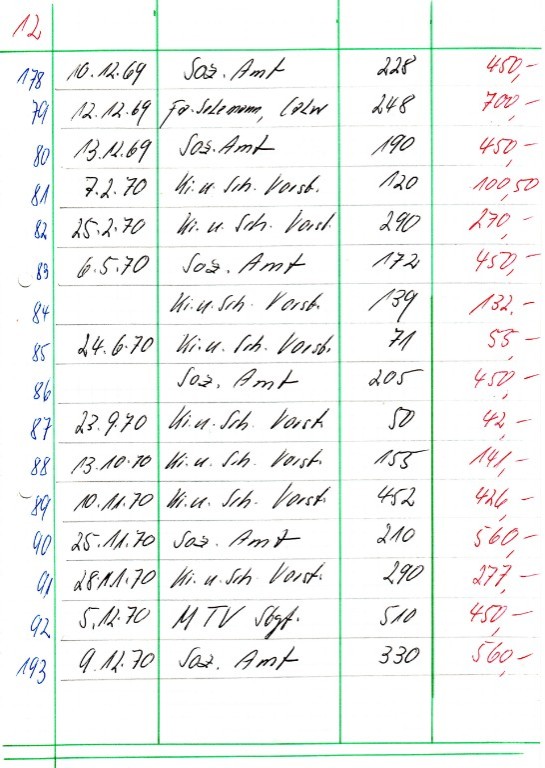 12
178 10.12.69 Soz. Amt 228 450,-
79 12.12.69 Fa. 248 700,-
80 13.12.69 Soz. Amt 190 450,-
81 7.2.70 Ki. u. Sch. Vorst. 120 100,50
82 25.2.70 Ki. u. Sch. Vorst. 290 270,-
83 6.5.70 Soz. Amt 172 450,-
84 Ki. u. Sch. Vorst. 139 132.-
85 24.6.70 Ki. u. Sch. Vorst. 71 55,-
86 Soz. Amt 205 450,-
87 23.9.70 Ki. u. Sch. Vorst 50 42,-
88 13.10.70 Ki. u. Sch. Vorst. 155 141,-
89 10.11.70 Ki. u. Sch. Vorst. 452 426,-
90 25.11.70 Soz. Amt 210 560,-
91 28.11.70 Ki. u. Sch. Vorst. 290 277,-
92 5.12.70 MTV Sbgt. 510 450,-
193 9.12.70 Soz. Amt 330 560,-